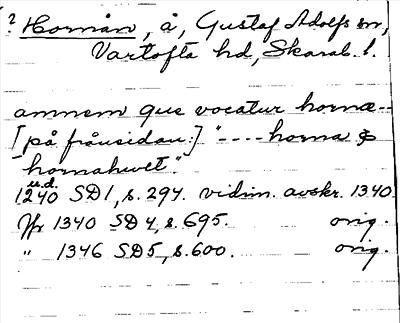 ? Hornån, å, Gustaf Adolfs sn,
Vartofta hd, Skarab. l.
amnem que vocatur hornæ--
[på frånsidan:] "----horna &
hornahwet".
u.d.
1240 SD1, s. 294. vidim. avskr. 1340.
Jfr 1340 SD4, s. 695. orig.
" 1346 SD5, s. 600. orig.